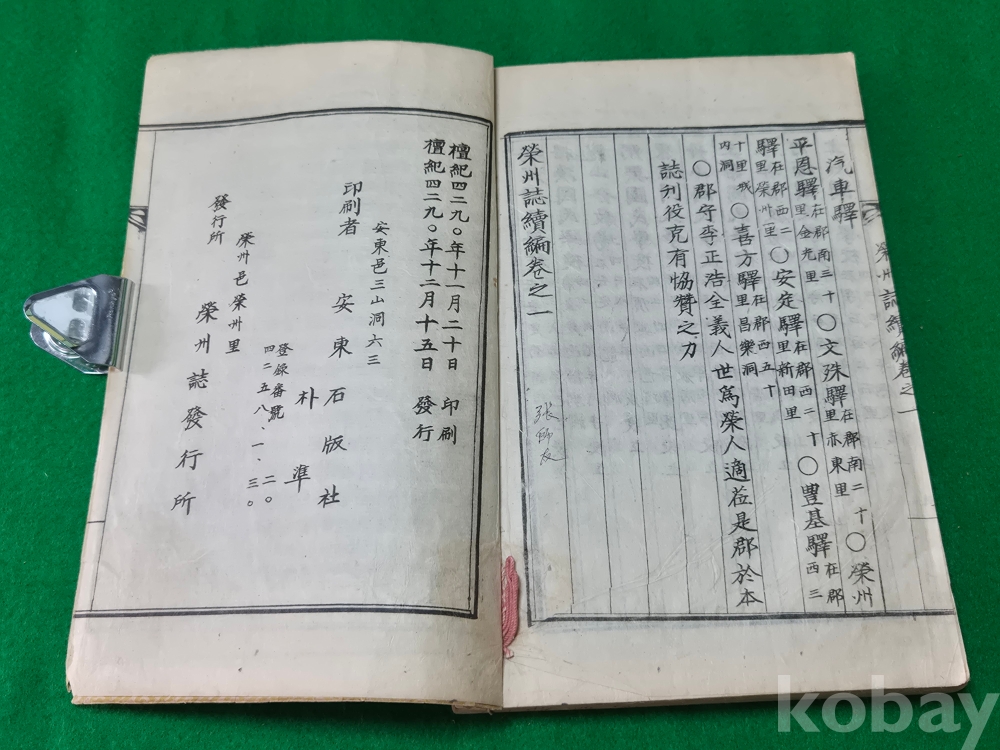 汽車驛
平恩驛在郡南三十里金光里〇文殊驛在郡南二十里赤東里〇榮州
驛在郡西二里榮州里〇安定驛在郡西二十里新田里〇豊基驛在郡西三
十里城內洞〇喜方驛在郡西五十里昌樂洞
〇郡守李正浩全義人世爲榮人適莅是郡於本
誌刊役克有協贊之力
榮州誌續編卷之一
榮州誌續編卷之一
檀紀四二九〇年十一月二十日 印刷
檀紀四二九〇年十二月十五日 發行
安東邑三山洞六三
印刷者 安東石版社
朴準
登錄番號
四二五八、一、二〇
三〇
榮州邑榮州里
發行所 榮州誌發行所
kobay